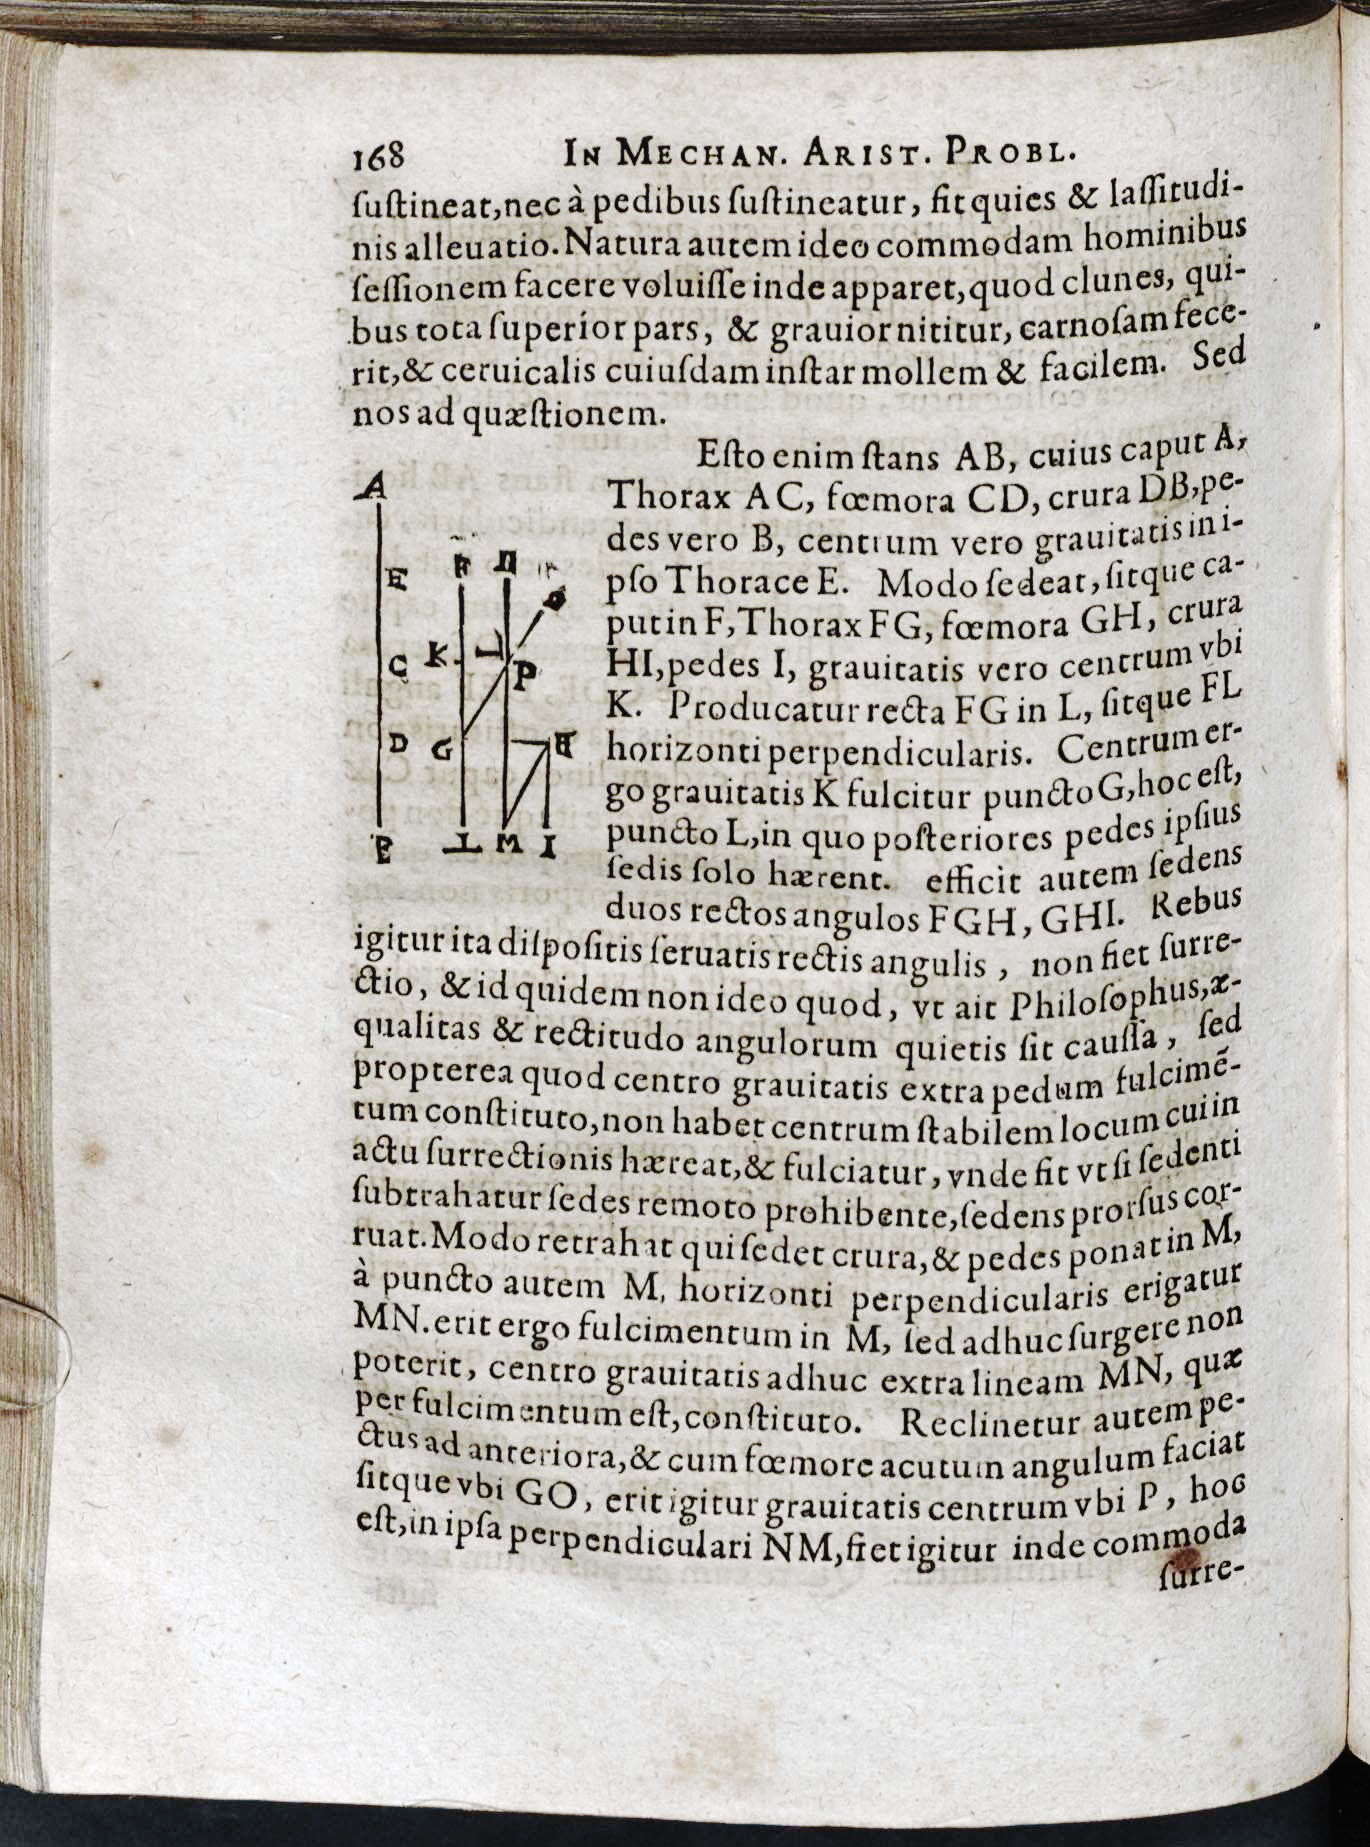 168 IN MECHAN. ARIST. PROBL.
ſuſtineat, nec à pedibus ſuſtineatur, fit quies & laſſitudi-
nis alleuatio. Natura autem ideo commodam hominibus
ſeſſionem facere voluiſſe inde apparet, quod clunes, qui-
bus tota ſuperior pars, & grauior nititur, carnoſam fece-
rit, & ceruicalis cuiuſdam inſtar mollem & facilem. Sed
nos ad quæſtionem.
Eſto enim ſtans AB, cuius caput A,
Thorax AC, fœmora CD, crura DB, pe-
des vero B, centrum vero grauitatis in i-
pſo Thorace E. Modo ſedeat, ſitque ca-
put in F, Thorax FG, fœmora GH, crura
HI, pedes I, grauitatis vero centrum vbi
K. Producatur recta FG in L, ſitque FL
horizonti perpendicularis. Centrum er-
go grauitatis K fulcitur puncto G, hoc eſt,
puncto L, in quo poſteriores pedes ipſius
ſedis ſolo hærent. efficit autem ſedens
duos rectos angulos FGH, GHI. Rebus
igitur ita diſpoſitis ſeruatis rectis angulis, non fiet ſurre-
ctio, & id quidem non ideo quod, vt ait Philoſophus, æ-
qualitas & rectitudo angulorum quietis ſit cauſſa, ſed
propterea quod centro grauitatis extra pedum fulcimẽ-
tum conſtituto, non habet centrum ſtabilem locum cui in
actu ſurrectionis hæreat, & fulciatur, vnde fit vt ſi ſedenti
ſubtrahatur ſedes remoto prohibente, ſedens prorſus cor-
ruat. Modo retrahat qui ſedet crura, & pedes ponat in M,
à puncto autem M, horizonti perpendicularis erigatur
MN. erit ergo fulcimentum in M, ſed adhuc ſurgere non
poterit, centro grauitatis adhuc extra lineam MN, quæ
per fulcimentum eſt, conſtituto. Reclinetur autem pe-
ctus ad anteriora, & cum fœmore acutum angulum faciat
ſitque vbi GO, erit igitur grauitatis centrum vbi P, hoc
eſt, in ipſa perpendiculari NM, fiet igitur inde commoda
ſurre-
A
F N
E O
C K L P
D G H
B L M I